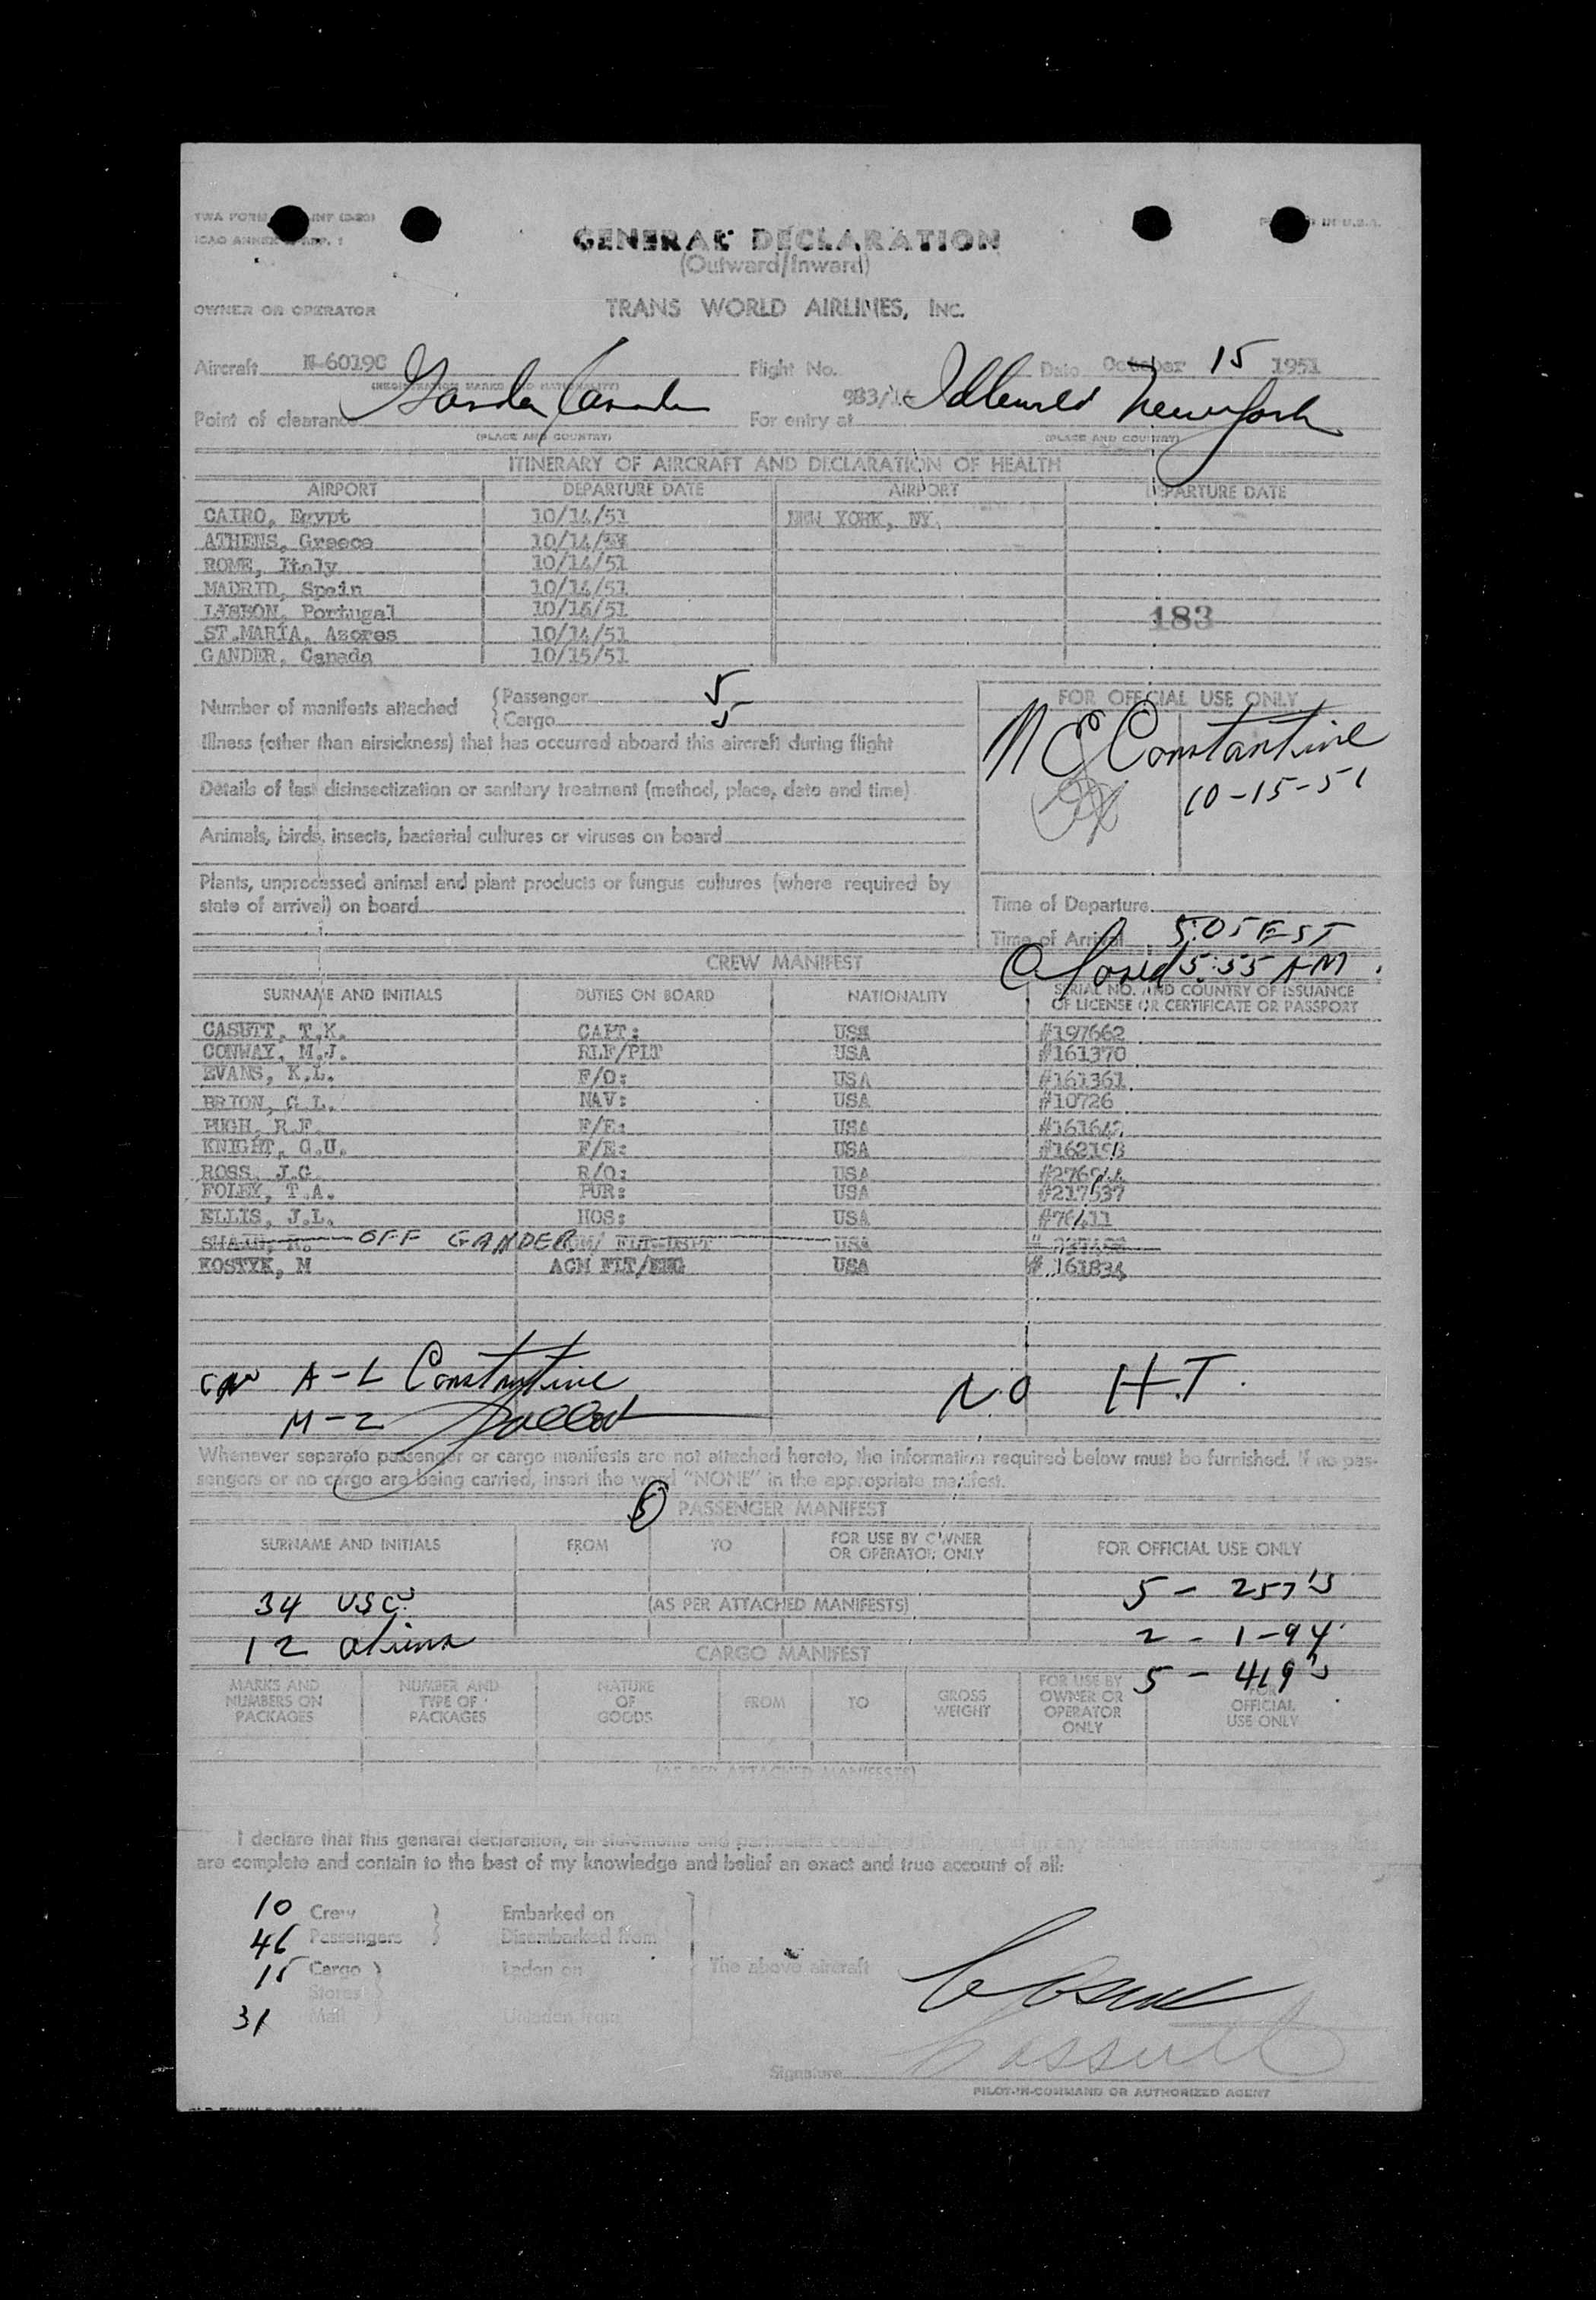 GENERAL DECLARATION
(Outward/Inward)
OWNER OR OPERATOR TRANS WORLD AIRLINES, INC.
Aircraft N-6019C Flight No. 983/14 Date October 15 1951
(REGISTRATION MARKS AND NATIONALITY)
Point of clearance Gander Canada For entry at Idlewild New York
(PLACE AND COUNTRY) (PLACE AND COUNTRY)
ITINERARY OF AIRCRAFT AND DECLARATION OF HEALTH
AIRPORT DEPARTURE DATE AIRPORT DEPARTURE DATE
CAIRO, Egypt 10/14/51 NEW YORK, NY.
ATHENS, Greece 10/14/51
ROME, Italy 10/14/51
MADRID, Spain 10/14/51
LISBON, Portugal 10/14/51 183
ST.MARIA, Azores 10/14/51
GANDER, Canada 10/15/51
Number of manifests attached
Passenger 5
Cargo 5
FOR OFFICIAL USE ONLY
N E Constantine
10-15-51
Illness (other than airsickness) that has occurred aboard this aircraft during flight
Details of last disinsectization or sanitary treatment (method, place, date and time)
Animals, birds, insects, bacterial cultures or viruses on board
Plants, unprocessed animal and plant products or fungus cultures (where required by
state of arrival) on board
Time of Departure
Time of Arrival 5:05 EST
5:55 AM
CREW MANIFEST
SURNAME AND INITIALS DUTIES ON BOARD NATIONALITY SERIAL NO. AND COUNTRY OF ISSUANCE
OF LICENSE OR CERTIFICATE OR PASSPORT
CASUTT, T.K. CAPT: USA #197662
CONWAY, M.J. RLF/PLT USA #161370
EVANS, K.L. F/O: USA #161361
BRION, G.L. NAV: USA #10726
PUGH, R.F. F/E: USA
KNIGHT, G.U. F/E: USA
ROSS, J.G. R/O: USA
FOLEY, T.A. PUR: USA #217537
ELLIS, J.L. HOS: USA #76411
OFF GANDER USA
KOSTYK, M ACM FLT/ENG USA # 161834
A-L Constantine NO H.T.
M-Z
Whenever separate passenger or cargo manifests are not attached hereto, the information required below must be furnished. If no pas-
sengers or no cargo are being carried, insert the word "NONE" in the appropriate manifest.
5 PASSENGER MANIFEST
SURNAME AND INITIALS FROM TO FOR USE BY OWNER
OR OPERATOR ONLY FOR OFFICIAL USE ONLY
5 - 257's
34 USC (AS PER ATTACHED MANIFESTS)
2 - I-94
12 aliens
CARGO MANIFEST
5 - 419's
MARKS AND
NUMBERS ON
PACKAGES
NUMBER AND
TYPE OF
PACKAGES
NATURE
OF
GOODS
FROM
TO
GROSS
WEIGHT
FOR USE BY
OWNER OR
OPERATOR
ONLY
FOR
OFFICIAL
USE ONLY
(AS PER ATTACHED MANIFESTS)
I declare that this general declaration, all statements and particulars contained
are complete and contain to the best of my knowledge and belief an exact and true account of all:
10 Crew Embarked on
46 Passengers Disembarked from
15 Cargo Laden on The above aircraft
Stores
31 Mail Unladen from
Signature Cassutt
PILOT-IN-COMMAND OR AUTHORIZED AGENT